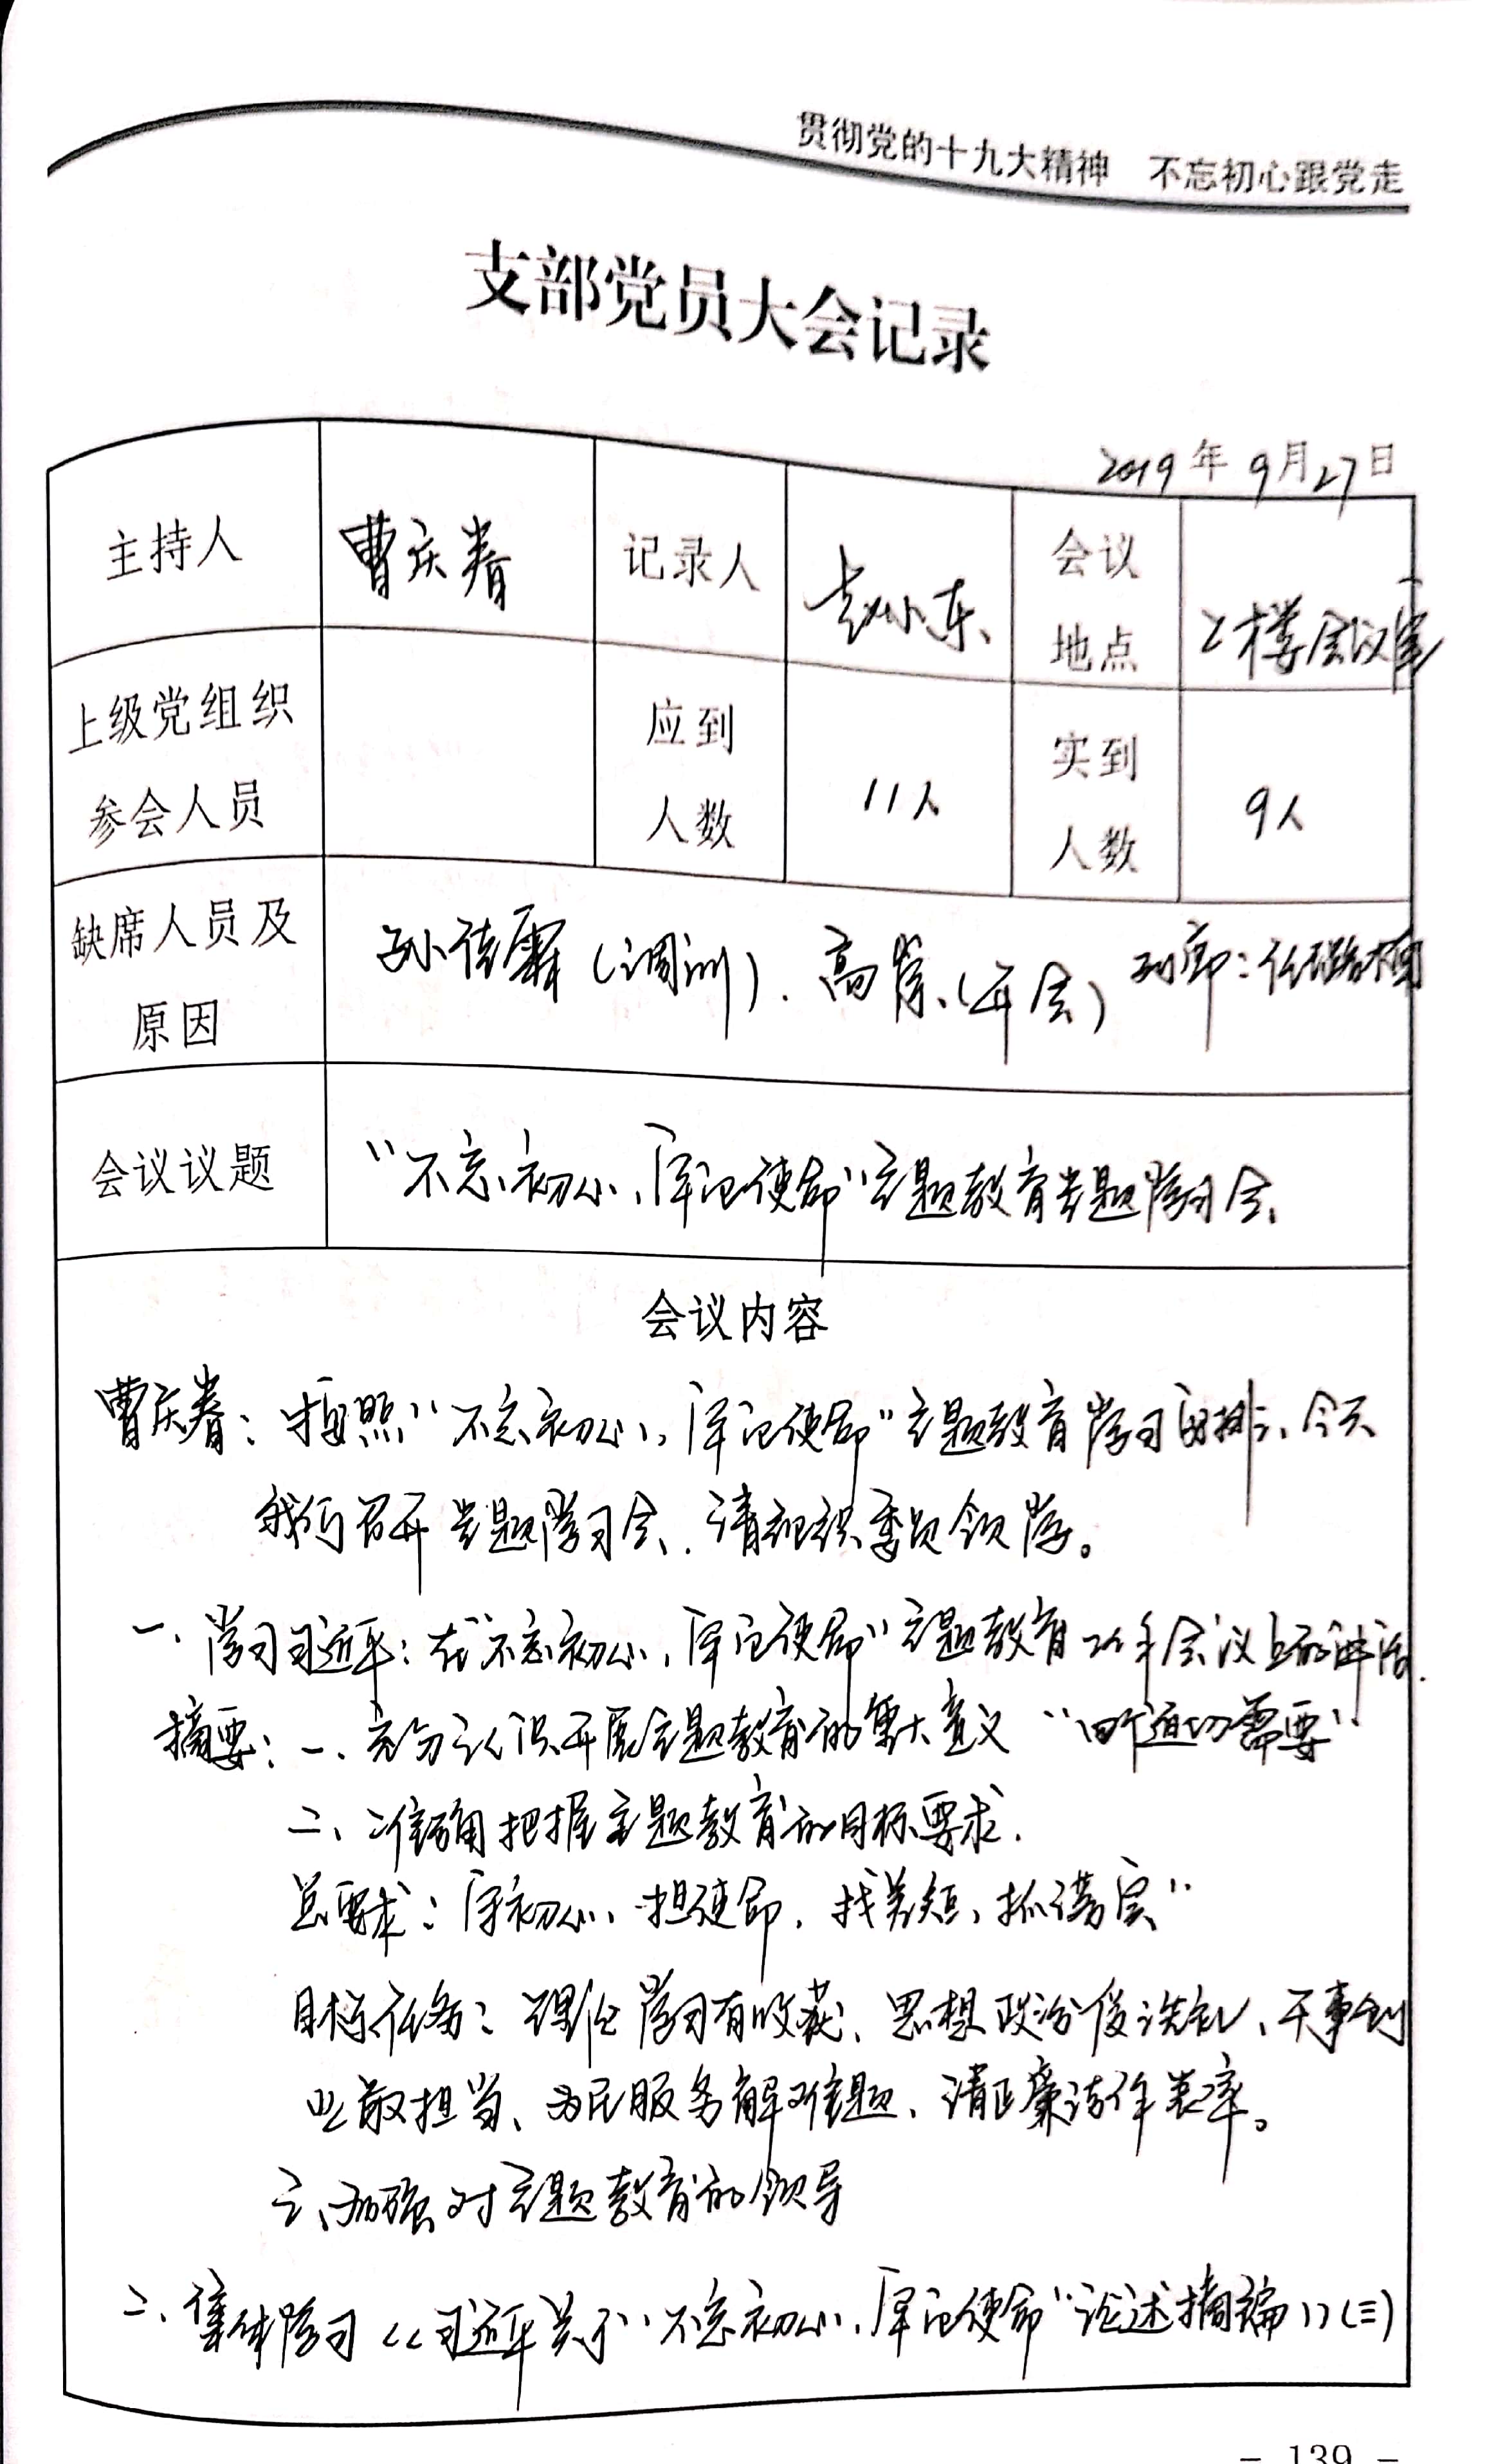 贯彻党的十九大精神 不忘初心跟党走
支部党员大会记录
2019年9月27日
主持人 曹庆春 记录人 赵小东 会议地点 2楼会议室
上级党组织参会人员 应到人数 11人 实到人数 9人
缺席人员及原因 孙佳霖(调训)、高常(开会)
会议议题 “不忘初心、牢记使命”主题教育专题学习会
会议内容
曹庆春：按照“不忘初心、牢记使命”主题教育学习安排、今天
我们召开专题学习会、请组织委员领学。
一、学习习近平：在“不忘初心、牢记使命”主题教育工作会议上的讲话.
摘要：一、充分认识开展主题教育的重大意义 “四个迫切需要”
二、准确把握主题教育的目标要求.
总要求：守初心、担使命, 找差距、抓落实”
目标任务：理论学习有收获、思想政治受洗礼、干事创
业敢担当、为民服务解难题、清正廉洁作表率。
三、加强对主题教育的领导
二、集体学习《习近平关于“不忘初心、牢记使命”论述摘编》(三)
- 139 -